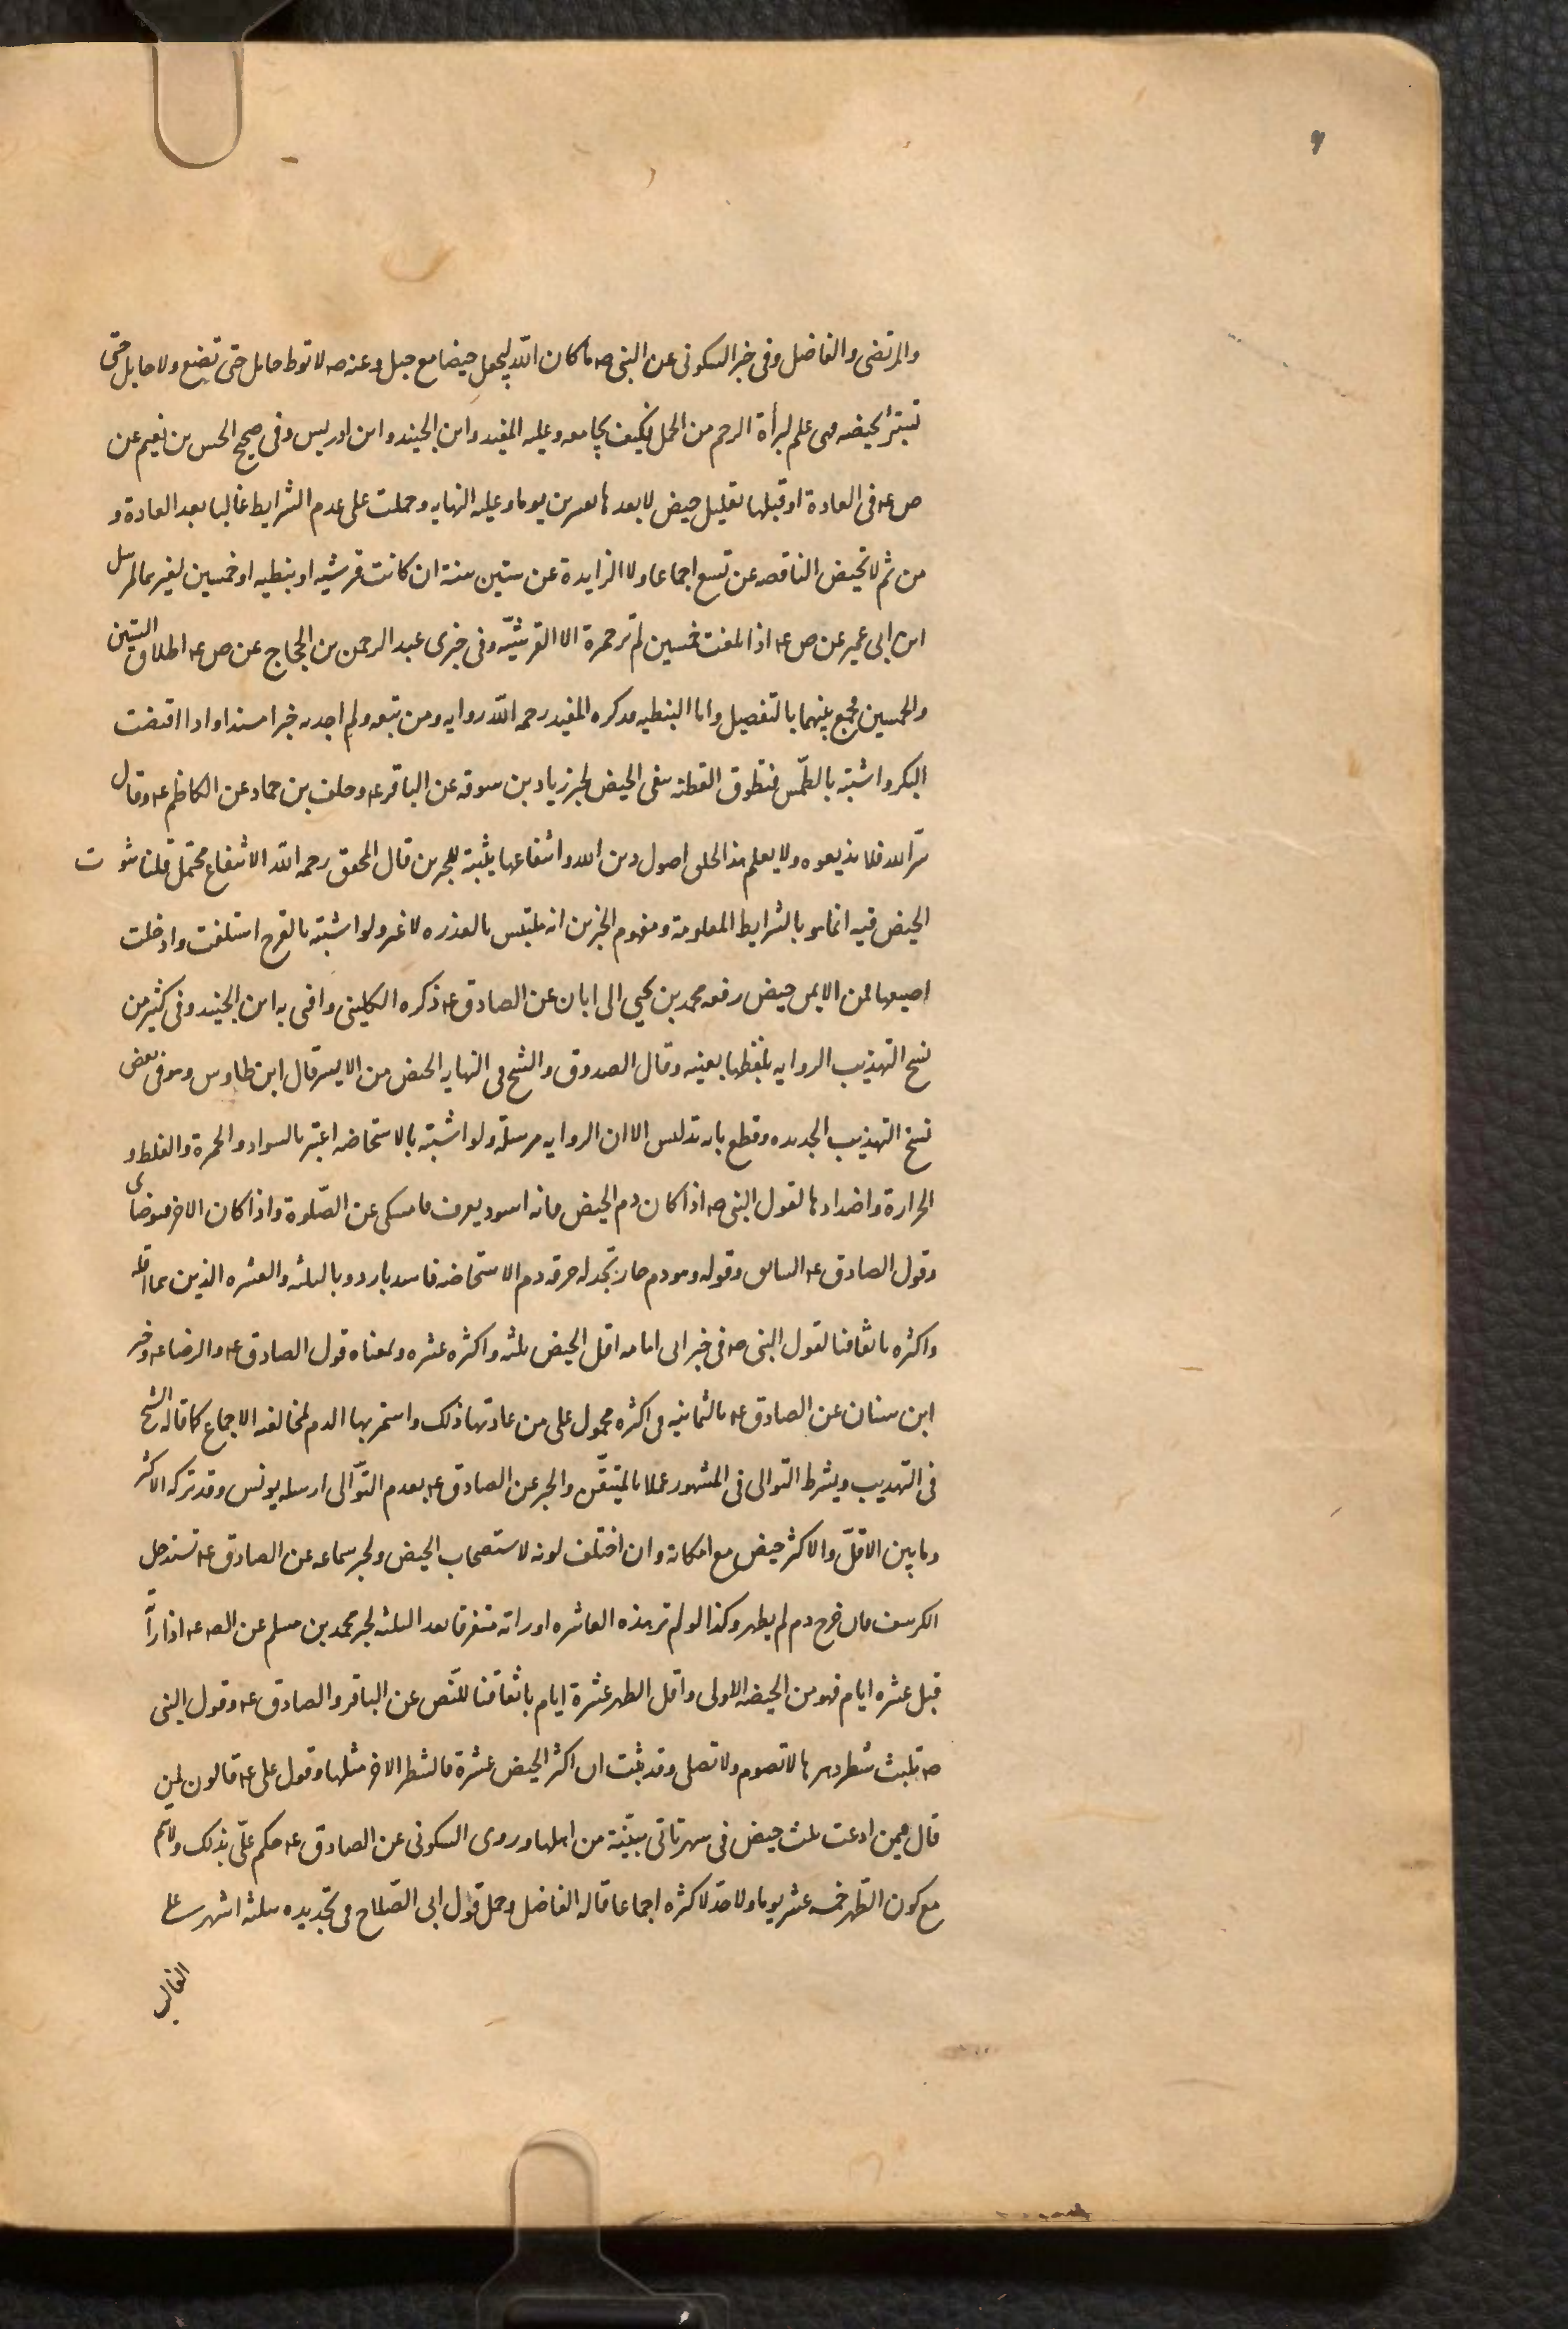 ٩
والمرتضى والفاضل وفى خبر السكونى عن النبى صه ما كان الله ليجعل حيضا مع حبل وعنه صه لا توطا حامل حتى تضع ولا حايل حتى
تستبرئ بحيضه وهى علم لبرأة الرحم من الحمل فكيف يجامعه وعليه المفيد وابن الجنيد وابن ادريس وفى صحيح الحسن بن نعيم عن
ص ع‍ فى العادة او قبلها بقليل حيض لا بعدها بعشرين يوما وعليه النهايه وحملت على عدم الشرايط غالبا بعد العادة و
من ثم لا تحيض الناقصه عن تسع اجماعا ولا الزايدة عن ستين سنة ان كانت قرشيه او نبطيه او خمسين لغيرهما لمرسل
ابن ابى عمير عن ص ع‍ اذا بلغت خمسين لم تر حمرة الا القرشيّه وفى خبرى عبد الرحمن بن الحجاج عن ص ع‍ اطلاق الستين
والخمسين فجمع بينهما بالتفصيل واما النبطيه فذكره المفيد رحمه الله روايه ومن تبعه ولم اجد به خبرا مسندا واذا اقتضت
البكر واشتبه بالطمث فتطوق القطنه ينفى الحيض لخبر زياد بن سوقه عن الباقر ع‍ وخلف بن حماد عن الكاظم ع‍ وقال
سرّ الله فلا تذيعوه ولا تعلم هذا الخلق اصول دين الله واشفاعها يثبته للخبرين قال المحقق رحمه الله الاشفاع محتمل قلنا ثبوت
الحيض فيه انما هو بالشرايط المعلومة ومفهوم الخبرين انه ملتبس بالعذره لا غير ولو اشتبه بالقرح استلقت وادخلت
اصبعها فمن الايمن حيض رفعه محمد بن يحيى الى ابان عن الصادق ع‍ ذكره الكلينى وافتى به ابن الجنيد وفى كثير من
نسخ التهذيب الروايه بلفظها بعينه وقال الصدوق والشيخ فى النهايه الحيض من الايسر قال ابن طاوس وهو فى بعض
نسخ التهذيب الجديده وقطع بانه تدليس الا ان الروايه مرسله ولو اشتبه بالاستحاضه اعتبر بالسواد والحمرة والغلظ و
الحرارة واضدادها لقول النبى صه اذا كان دم الحيض فانه اسود يعرف فامسكى عن الصّلوة واذا كان الاخر فتوضاى
وقول الصادق ع‍ السابق وقوله وهو دم حار تجد له حرقه دم الاستحاضه فاسد بارد وبالثلثه والعشره الذين هما اقله
واكثره باتفاقنا لقول النبى صه فى خبر ابى امامه اقل الحيض ثلثه واكثره عشره وبمعناه قول الصادق ع‍ والرضا ع‍ وخبر
ابن سنان عن الصادق ع‍ بالثمانيه فى اكثره محمول على من عادتها ذلك واستمر بها الدم لمخالفه الاجماع كما قاله الشيخ
فى التهذيب ويشرط التوالى فى المشهور عملا بالمتيقّن والخبر عن الصادق ع‍ بعدم التوّالى ارسله يونس وقد تركه الاكثر
وما بين الاقلّ والاكثر حيض مع امكانه وان اختلف لونه لاستصحاب الحيض ولخبر سماعه عن الصادق ع‍ تستدخل
الكرسف فان خرج دم لم يطهر وكذا لو لم تر هذه العاشره او راته متفرقا بعد الثلثه لخبر محمد بن مسلم عن الصه ع‍ اذا رأت
قبل عشره ايام فهو من الحيضه الاولى واقل الطهر عشرة ايام باتفاقنا للنّص عن الباقر والصادق ع‍ وقول النبى
صه تلبث شطر دهرها لا تصوم ولا تصلى وقد ثبت ان اكثر الحيض عشرة فالشطر الاخر مثلها وقول على ع‍ قالون لمن
قال فيمن ادعت ثلث حيض فى شهر تاتى ببيّنة من اهلها وروى السكونى عن الصادق ع‍ حكم علىّ بذلك ولا يتم
مع كون الطّهر خمسه عشر يوما ولا حدّ لاكثره اجماعا قاله الفاضل وحمل قول ابى الصّلاح فى تحديده بثلثه اشهر على
الغالب